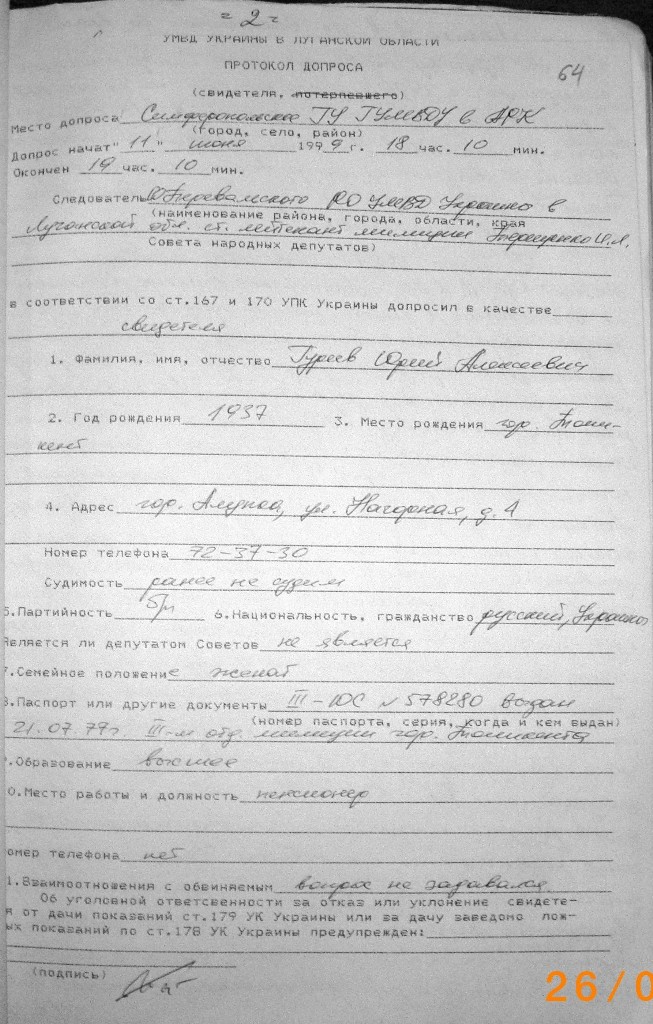 = 2 =
УМВД УКРАИНЫ В ЛУГАНСКОЙ ОБЛАСТИ
ПРОТОКОЛ ДОПРОСА
64
(свидетеля, потерпевшего)
Место допроса Симферопольское ГУ ГУМВДУ в АРК
(город, село, район)
Допрос начат "11" июня 1999 г. 18 час. 10 мин.
Окончен 19 час. 10 мин.
Следователь Перевальского РО УМВД Украины в
(наименование района, города, области, края
Луганской обл. ст. лейтенант милиции
Совета народных депутатов)
в соответствии со ст.167 и 170 УПК Украины допросил в качестве
свидетеля
1. Фамилия, имя, отчество Гуреев Юрий Алексеевич
2. Год рождения 1937 3. Место рождения гор. Таш-
кент
4. Адрес гор. Алупка, ул. Нагорная, д. 4
Номер телефона 72-37-30
Судимость ранее не судим
5.Партийность б/п 6.Национальность, гражданство русский, Украины
Является ли депутатом Советов не является
7.Семейное положение женат
8.Паспорт или другие документы III-ЮС № 578280 выдан
(номер паспорта, серия, когда и кем выдан)
21.07.77г. III-м отд. милиции гор. Ташкента
.Образование высшее
0.Место работы и должность пенсионер
омер телефона нет
1.Взаимоотношения с обвиняемым вопрос не задавался
Об уголовной ответсвенности за отказ или уклонение свидете-
я от дачи показаний ст.179 УК Украины или за дачу заведомо лож-
ых показаний по ст.178 УК Украины предупрежден:
(подпись)
26/0